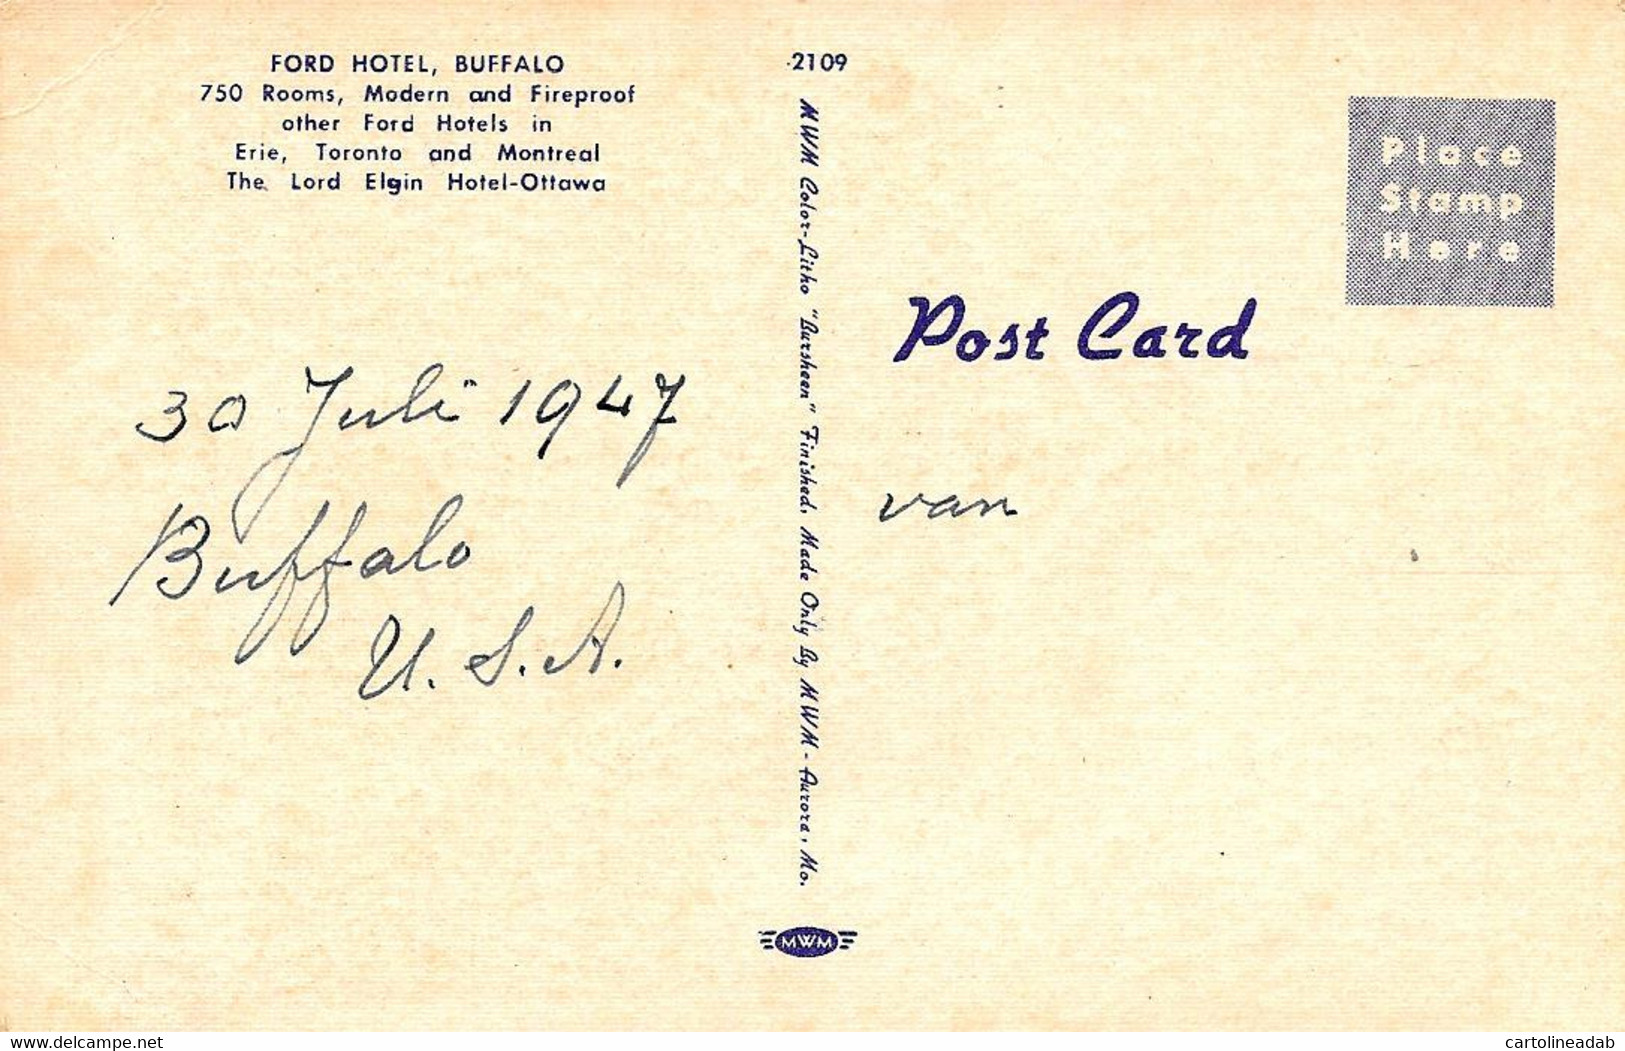 FORD HOTEL, BUFFALO
750 Rooms, Modern and Fireproof
other Ford Hotels in
Erie, Toronto and Montreal
The Lord Elgin Hotel-Ottawa
30 Juli 1947
Buffalo
U.S.A.
2109
MWM Color-Litho "Bursheen" Finished. Made Only By MWM - Aurora, Mo.
MWM
Place
Stamp
Here
Post Card
van
www.delcampe.net
cartolineadab